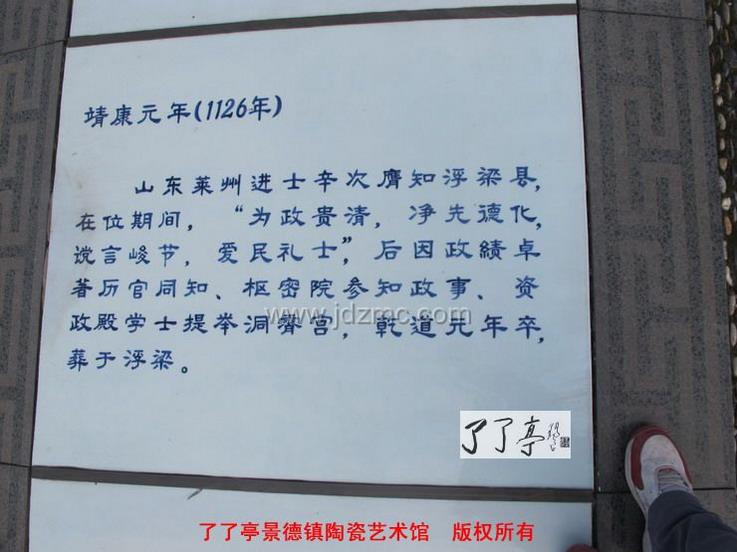 靖康元年(1126年)
山东莱州进士辛次膺知浮梁县,
在位期间,“为政贵清,净先德化,
谠言峻节,爱民礼士”,后因政绩卓
著历官同知、枢密院参知政事、资
政殿学士提举洞霄宫,乾道元年卒,
葬于浮梁。
www.jdzmc.com
了了亭
了了亭景德镇陶瓷艺术馆 版权所有